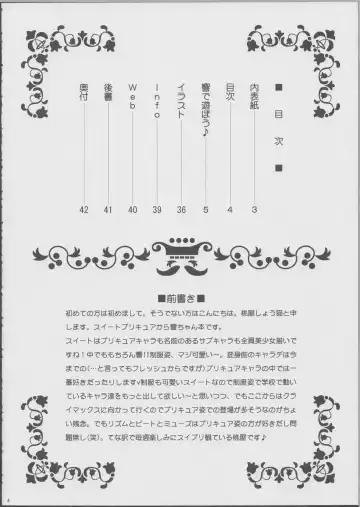 ■ 目 次 ■
内表紙 3
目次 4
響で遊ぼう♪ 5
イラスト 36
Info 39
Web 40
後書 41
奥付 42
■前書き■
初めての方は初めまして。そうでない方はこんにちは。桃屋しょう猫と申
します。スイートプリキュアから響ちゃん本です。
スイートはプリキュアキャラも名前のあるサブキャラも全員美少女揃いで
すね!中でももちろん響!!制服姿、マジ可愛い〜。変身後のキャラデは今ま
での(…と言ってもフレッシュからですが)プリキュアキャラの中では一
番好きだったりします♥制服も可愛いスイートなので制服姿で学校で動い
ているキャラ達をもっと出して欲しい〜と思いつつ、でもここからはクラ
イマックスに向かって行くのでプリキュア姿での登場が多そうなのがちょ
い残念。でもリズムとビートとミューズはプリキュア姿の方が好きだし問
題無し(笑)。てな訳で毎週楽しみにスイプリ観ている桃屋です♪
4